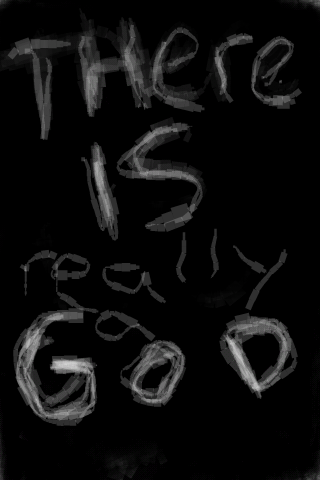 THere
IS
really
a
GoD